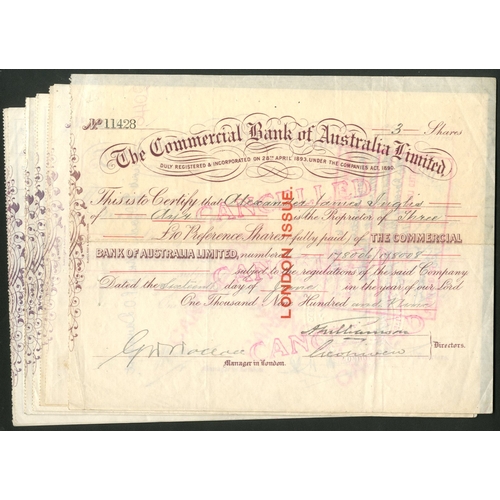 No 11428
3 — Shares
The Commercial Bank of Australia Limited.
DULY REGISTERED & INCORPORATED ON 28TH APRIL 1893, UNDER THE COMPANIES ACT, 1890.
This is to Certify that Alexander James Inglis
of is the Proprietor of Three
£10 Preference Shares (fully paid) of THE COMMERCIAL
BANK OF AUSTRALIA LIMITED, numbered 178006/178008
subject to the regulations of the said Company
Dated the day of June in the year of our Lord
One Thousand Nine Hundred and Nine
Directors.
Manager in London.
LONDON ISSUE.
CANCELLED
CANCELLED